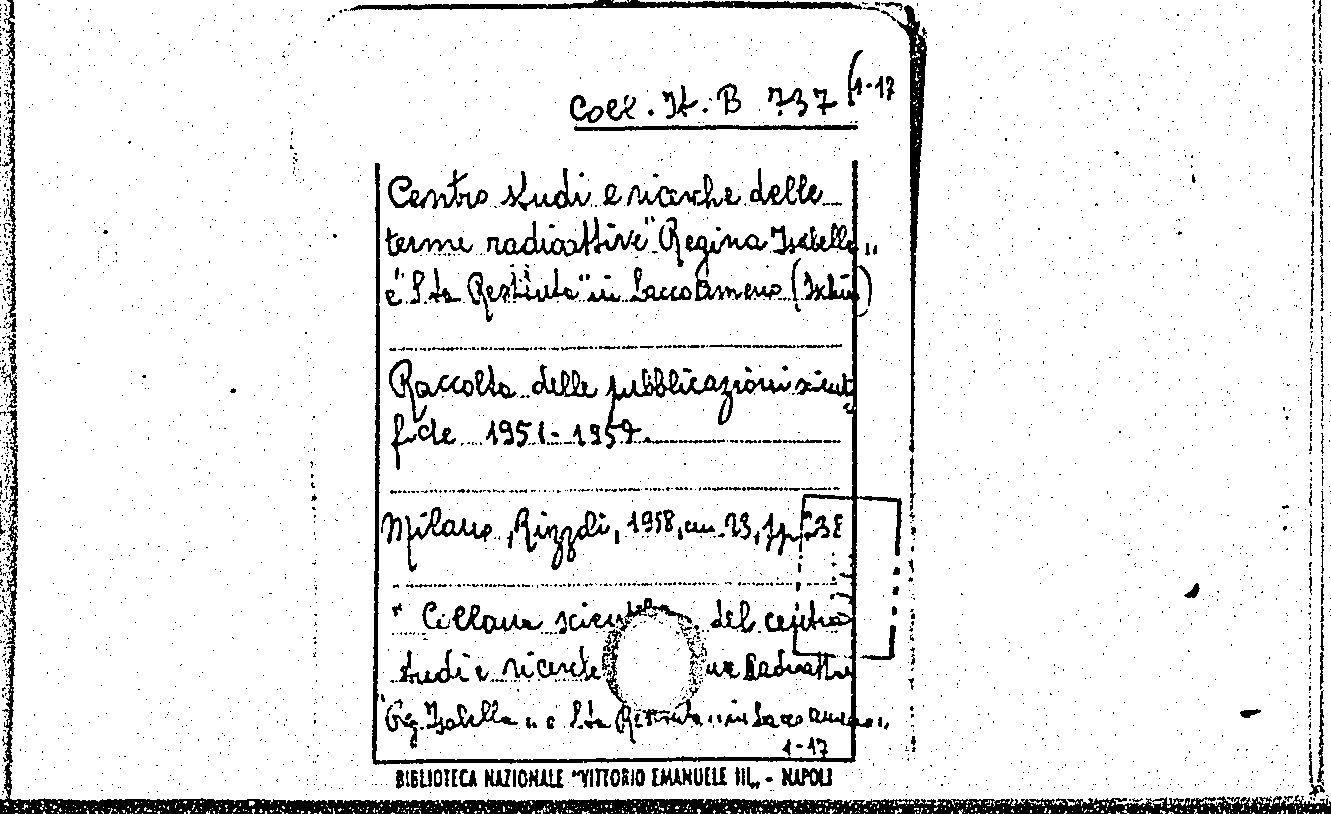 Coll. It. B 737 (1-17
Centro studi e ricerche delle
terme radioattive "Regina Isabella"
e "S.ta Restituta" in Lacco Ameno (Ischia)
Raccolta delle pubblicazioni scienti
fiche 1951-1957.
Milano, Rizzoli, 1958, cm. 23, pp. 238
" Collana scientifica del centro
studi e ricerche Radioattive
"Reg. Isabella" e S.ta Restituta" in Lacco Ameno"
1-17
BIBLIOTECA NAZIONALE "VITTORIO EMANUELE III" - NAPOLI